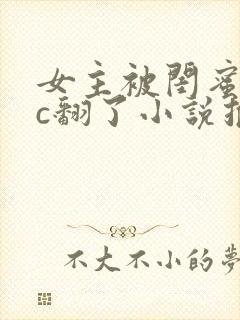 女主被閨蜜
c翻了小說推
不大不小的夢